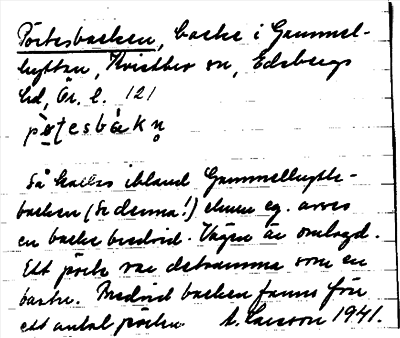 Pörtesbacken, backe i Gammel-
hyttan, Kvistbro sn, Edsbergs
hd, Ör. l. 121
pø̀ṭesbàkṇ
Så kallas ibland Gammelhytte-
backen (Se denna!) eljen eg. avses
en backe bredvid. Vägen är omlagd.
Ett pörte var detsamma som en
bastu. Nedvid backen fanns förr
ett antal pörten. A. Larsson 1941.